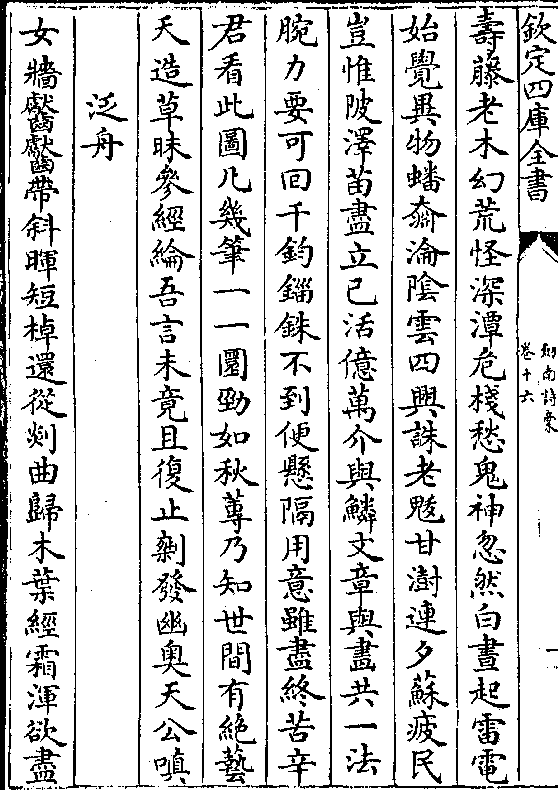 欽定四庫全書
劒南詩槀
卷十六
壽藤老木幻荒怪深潭危棧愁鬼神忽然白晝起雷電
始覺異物蟠奫淪陰雲四興誅老魃甘澍連夕蘇疲民
豈惟陂澤苗盡立已活億萬介與鱗文章與畫共一法
腕力要可回千鈞錙銖不到便懸隔用意雖盡終苦辛
君看此圖凡幾筆一一圜勁如秋蓴乃知世間有絶藝
天造草昧參經綸吾言未竟且復止剩發幽奥天公嗔
泛舟
女牆齾齾帶斜暉短棹還從剡曲歸木葉經霜渾欲盡